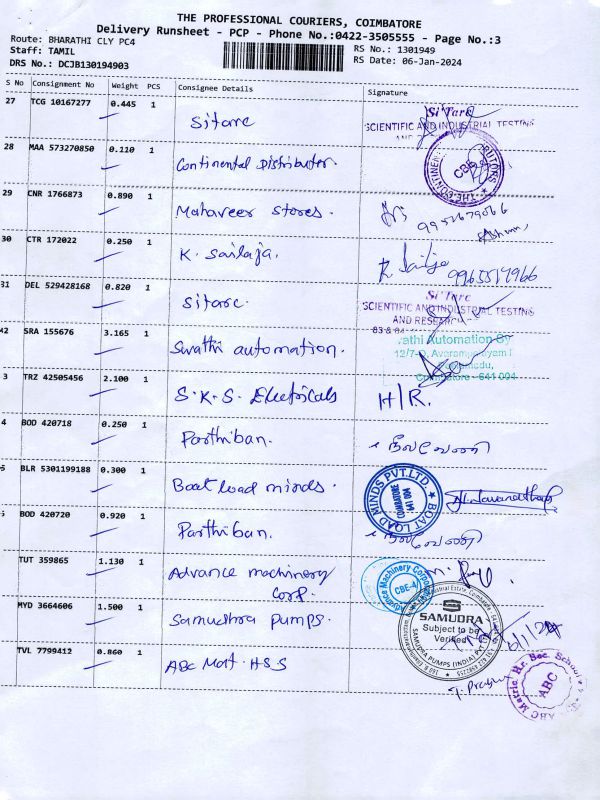 THE PROFESSIONAL COURIERS, COIMBATORE
Delivery Runsheet - PCP - Phone No.:0422-3505555 - Page No.:3
Route: BHARATHI CLY PC4
RS No.: 1301949
Staff: TAMIL
RS Date: 06-Jan-2024
DRS No.: DCJB130194903
S No Consignment No Weight PCS Consignee Details Signature
27 TCG 10167277 0.445 1 Sitarc
Si'Tarc
SCIENTIFIC AND INDUSTRIAL TESTING
28 MAA 573270850 0.110 1 Continental Distributer.
CBE
29 CNR 1766873 0.890 1 Mahaveer Stores.
9952679066
30 CTR 172022 0.250 1 K. Sailaja.
K. Sailaja 9965517966
31 DEL 529428168 0.820 1 Sitarc.
Si'Tarc
SCIENTIFIC AND INDUSTRIAL TESTING
AND RESEARCH
83 & 84
42 SRA 155676 3.165 1 Swathi automation.
wathi Automation Sy
Coimbatore - 641 004
3 TRZ 42505456 2.100 1 S.K.S. Electricals H/R.
4 BOD 420718 0.250 1 Parthiban.
BLR 5301199188 0.300 1 Boat load minds.
BOAT LOAD MINDS PVT.LTD.
COIMBATORE
641 004
BOD 420720 0.920 1 Parthiban.
TUT 359865 1.130 1 Advance machinery
Corp.
Advance Machinery Corporation
CBE-4
MYD 3664606 1.500 1 Samudhra pumps.
SAMUDRA
Subject to be
Verified
SAMUDRA PUMPS (INDIA) PVT
6/1/24
TVL 7799412 0.860 1 ABC Mat. H.S.S
ABC Matric Hr. Sec. School
ABC